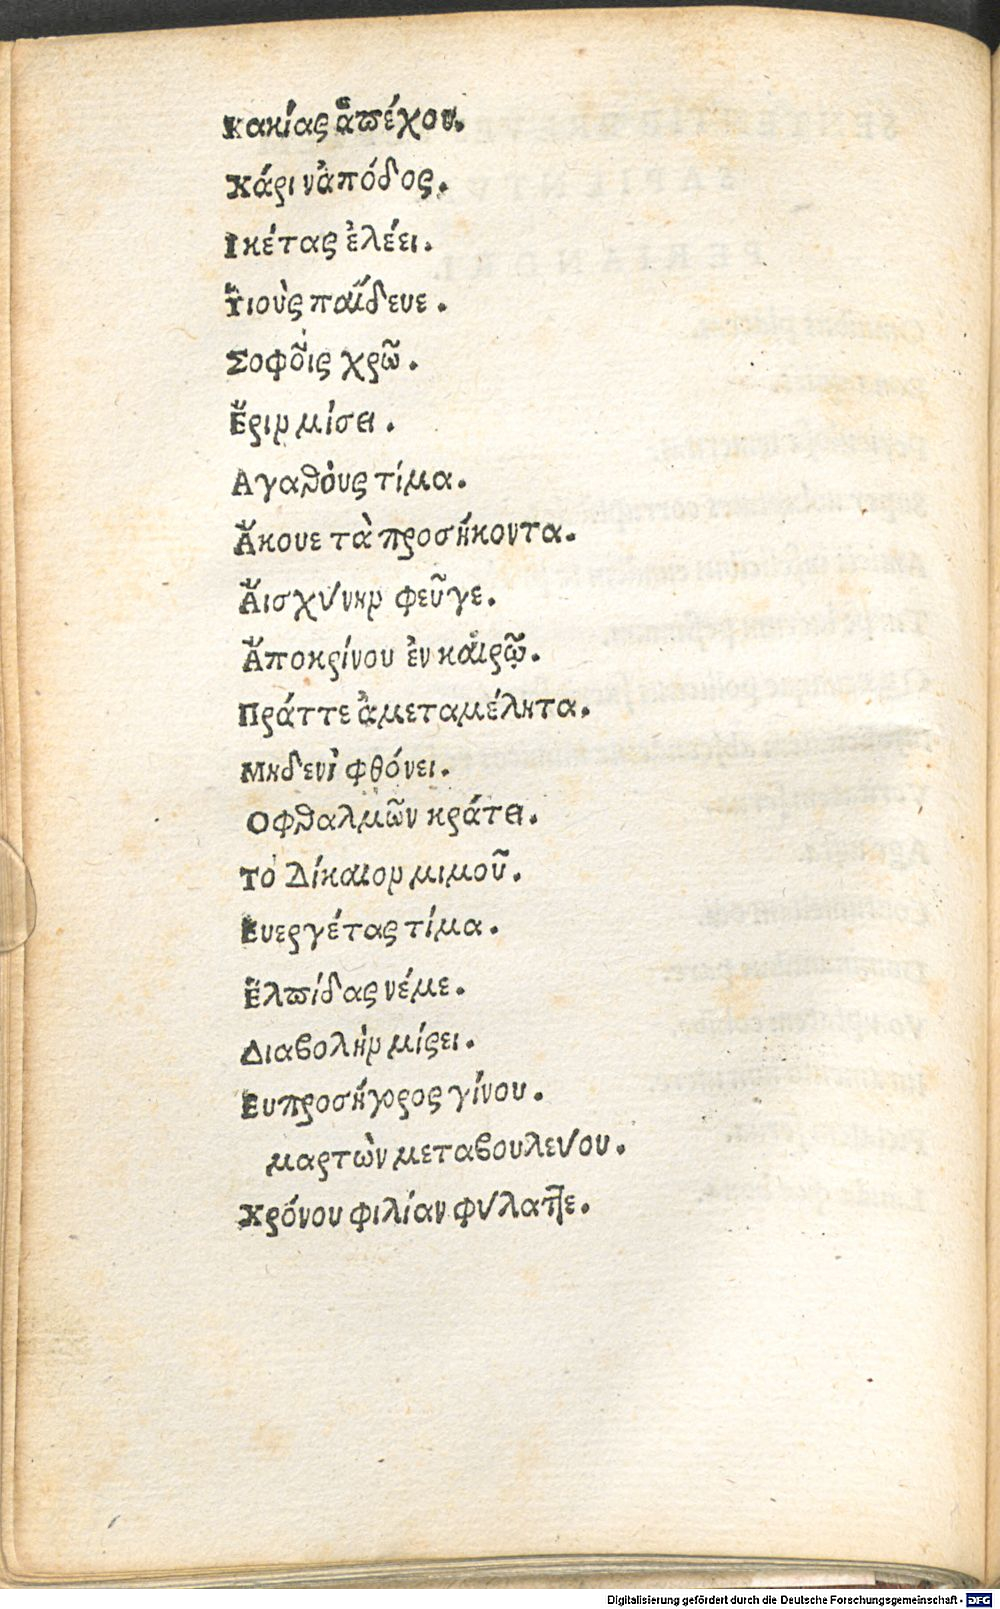 Κακίας ἀπέχου.
Χάριν ἀπόδος.
Ικέτας ἐλέει.
Ὑιοὺς παίδευε.
Σοφοῖς χρῶ.
Ἔριν μίσει.
Αγαθόυς τίμα.
Ἄκουε τὰ προσήκοντα.
Ἄισχύνην φεῦγε.
Ἄποκρίνου ἐν καιρῷ.
Πράττε ἀμεταμέλητα.
Μηδενὶ φθόνει.
Οφθαλμῶν κράτει.
Τὸ Δίκαιον μιμοῦ.
Ευεργέτας τίμα.
Ἐλπίδας νέμε.
Διαβολὴν μίσει.
Ευπροσήγορος γίνου.
μαρτὼν μεταβουλεύου.
Χρόνου φιλίαν φύλαττε.
Digitalisierung gefördert durch die Deutsche Forschungsgemeinschaft - DFG